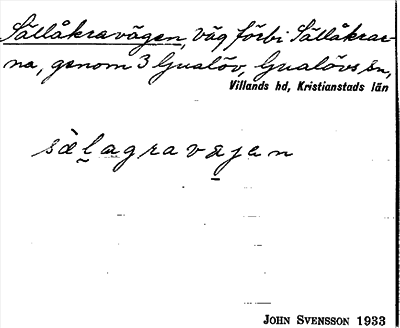 Sällåkravägen, väg förbi Sällåkrar-
na, genom 3 Gualöv, Gualövs sn,
Villands hd, Kristianstads län
sälagravajen
JOHN SVENSSON 1933